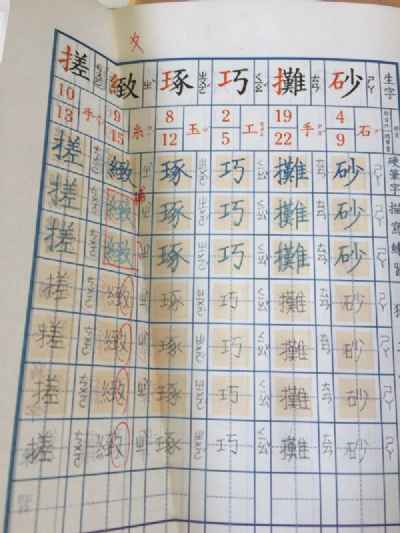 攵
生字
硬筆字描寫練習
砂 ㄕㄚ
4 9 石
砂 砂 砂 砂 砂 砂 砂
攤 ㄊㄢ
19 22 手
攤 攤 攤 攤 攤 攤 攤
巧 ㄑㄧㄠˇ
2 5 工
巧 巧 巧 巧 巧 巧 巧
琢 ㄓㄨㄛˊ
8 12 玉
琢 琢 琢 琢 琢 琢 琢
緻 ㄓˋ
9 15 糸
緻 緻 緻 緻 緻 緻 緻
搓 ㄘㄨㄛ
10 13 手
搓 搓 搓 搓 搓 搓 搓